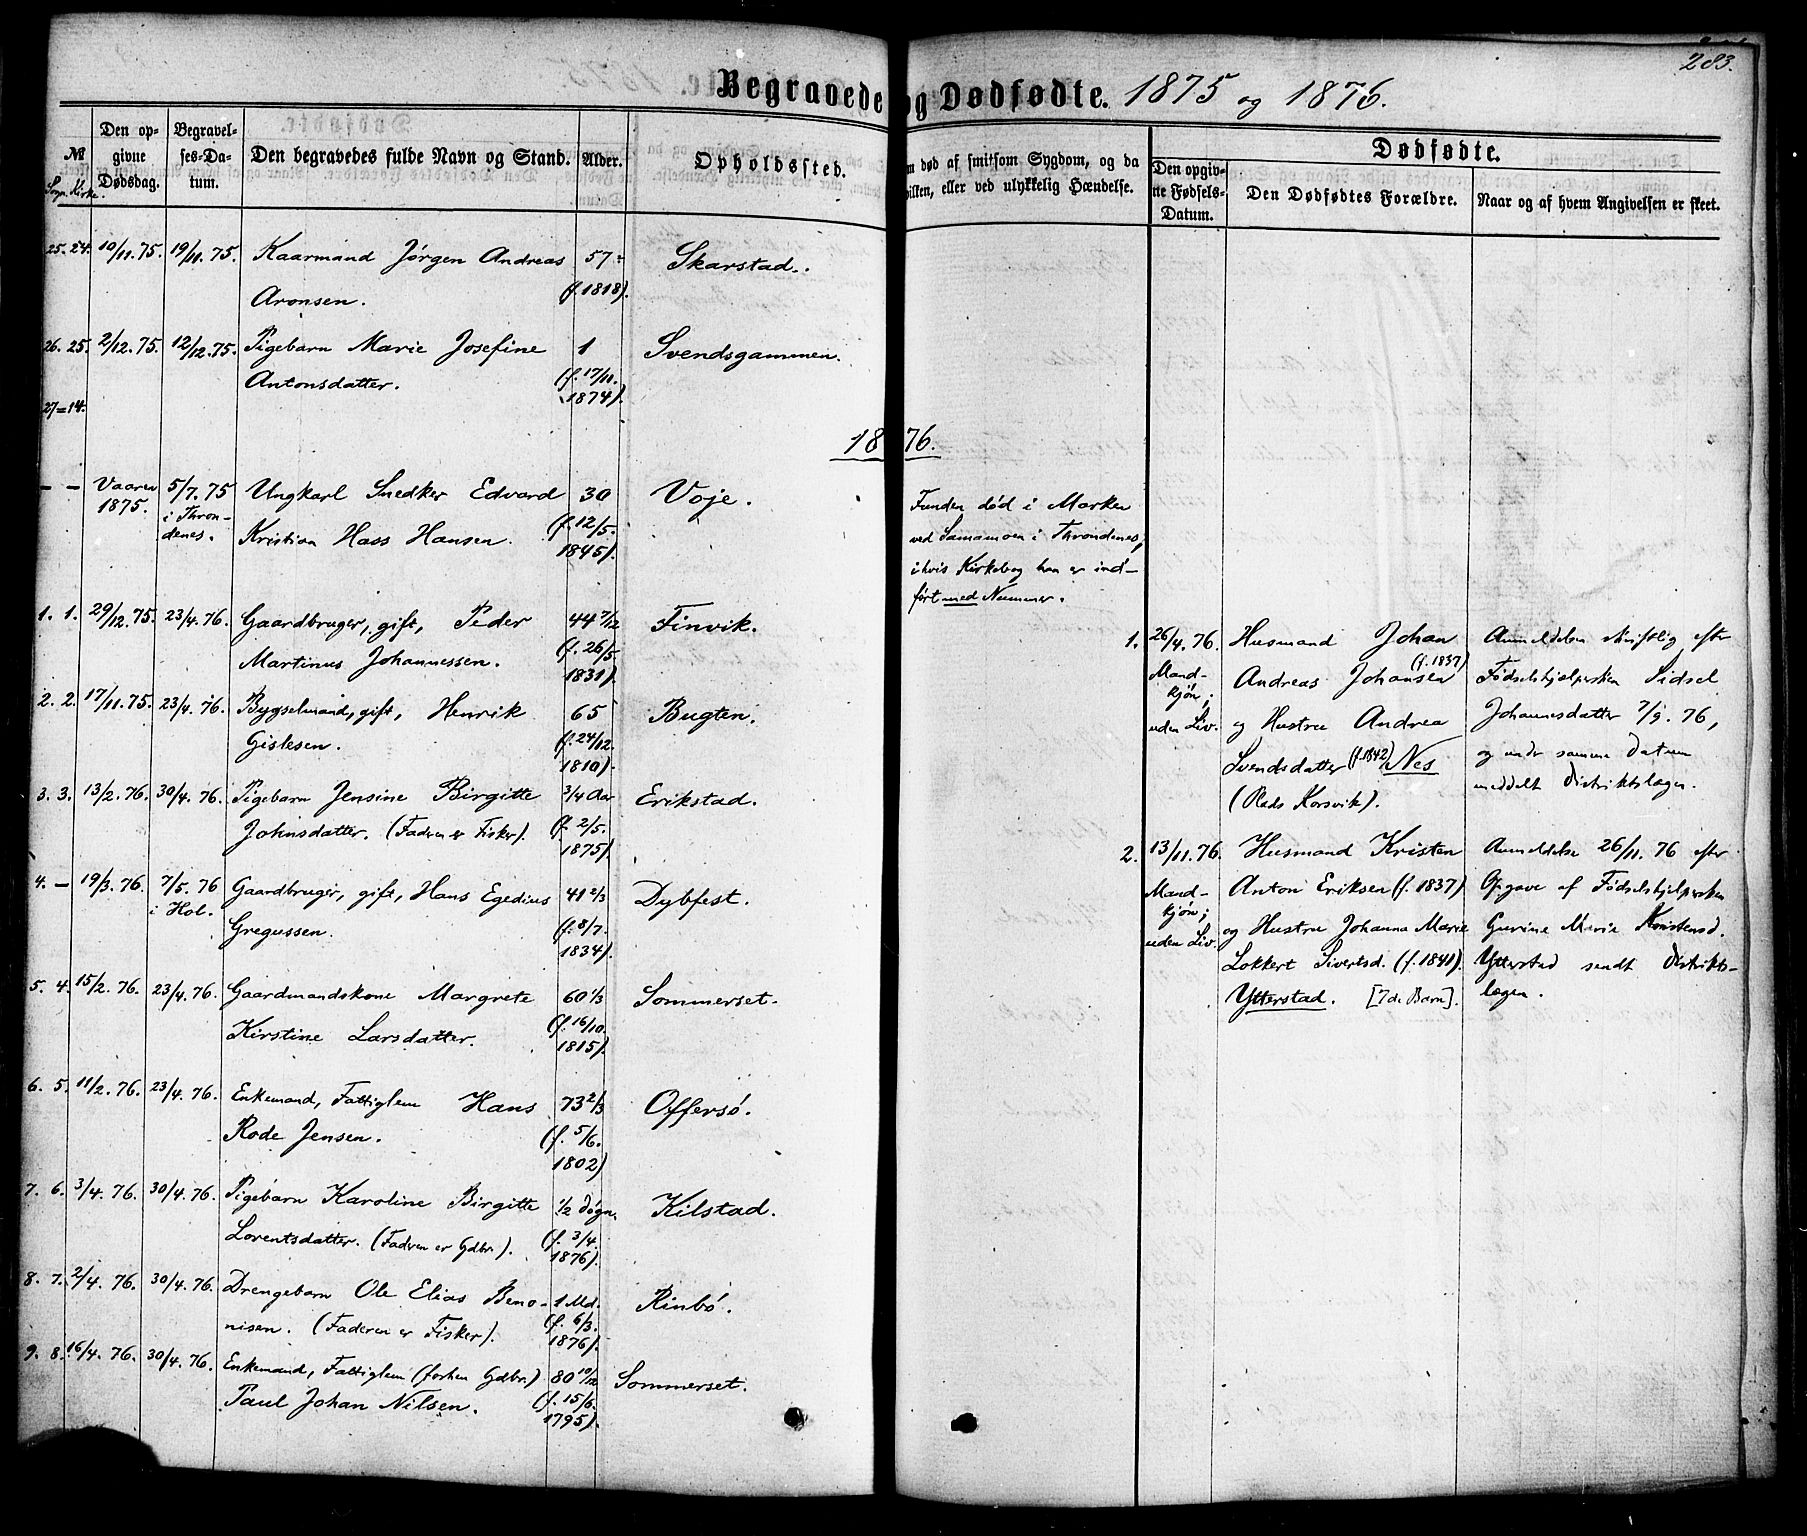 283.
Begravede og Dødfødte. 1875 og 1876.
№
Sogn. Kirke.
Den op-
givne
Dødsdag.
Begravel-
ses-Da-
tum.
Den begravedes fulde Navn og Stand.
Alder.
Opholdssted.
død af smitsom Sygdom, og da
hvilken, eller ved ulykkelig Hændelse.
Dødfødte.
Den opgiv-
ne Fødsels-
Datum.
Den Dødfødtes Forældre.
Naar og af hvem Angivelsen er skeet.
25. 24. 10/11. 75. 19/11. 75. Kaarmand Jørgen Andreas 57 Skarstad.
Aronsen. (f. 1818).
26. 25. 2/12. 75. 12/12. 75. Pigebarn Marie Josefine 1 Svendsgammen.
Antonsdatter. (f. 17/11.
1874).
27=14.
1876.
– – Vaaren 5/7. 75 Ungkarl Snedker Edvard 30 Voje.
1875. i Thron-
denes. Kristian Hass Hansen. (f. 12/5.
1845).
Funden død i Marken
ved Samamoen i Throndenes,
i hvis Kirkebog han er ind-
ført med Nummer.
1. 1. 29/12. 75. 23/4. 76. Gaardbruger, gift, Peder 44 7/12 Finvik.
Martinus Johannessen. (f. 26/5
1831).
2. 2. 17/11. 75. 23/4. 76. Bygselmand, gift, Henrik 65 Bugten.
Gislesen. (f. 24/12.
1810).
3. 3. 13/2. 76. 30/4. 76. Pigebarn Jensine Birgitte 3/4 Aar Erikstad.
Johnsdatter. (Faderen er Fisker). (f. 2/5.
1875).
4. – 19/3. 76. 7/5. 76 Gaardbruger, gift, Hans Egedius 41 2/3 Dybfest.
i Hol. Gregussen. (f. 8/7.
1834).
5. 4. 15/2. 76. 23/4. 76. Gaardmandskone Margrete 60 1/3 Sommerset.
Kirstine Larsdatter. (f. 16/10.
1815).
6. 5. 11/2. 76. 23/4. 76. Enkemand, Fattiglem Hans 73 2/3 Offersö.
Rode Jensen. (f. 5/6.
1802)
7. 6. 3/4. 76. 30/4. 76. Pigebarn Karoline Birgitte 1/2 Døgn. Kilstad.
Lorentsdatter. (Faderen er Gdbr.). (f. 3/4.
1876).
8. 7. 2/4. 76. 30/4. 76. Drengebarn Ole Elias Beno- 1 Md. Rinbö.
nisen. (Faderen er Fisker). (f. 6/3.
1876).
9. 8. 16/4. 76. 30/4. 76. Enkemand, Fattiglem (forhen Gdbr.) 80 10/12 Sommerset.
Paul Johan Nilsen. (f. 15/6.
1795).
1. 26/4. 76.
Mand-
kjøn;
uden Liv.
Husmand Johan
Andreas Johansen (f. 1837)
og Hustru Andrea
Svendsdatter (f. 1842) Nes
(Plads Korsvik).
Anmeldelse skriftlig efter
Fødselshjelpersken Sidsel
Johannesdatter 7/9. 76,
og under samme Datum
meddelt Distriktslægen.
2. 13/11. 76.
Mand-
kjøn;
uden Liv.
Husmand Kristen
Anton Eriksen (f. 1837)
og Hustru Johanna Marie
Lokkert Sivertsd. (f. 1841).
Ytterstad. [7de Barn].
Anmeldelse 26/11. 76 efter
Opgave af Fødselshjelpersken
Gurine Marie Kristensd.
Ytterstad sendt Distrikts-
lægen.